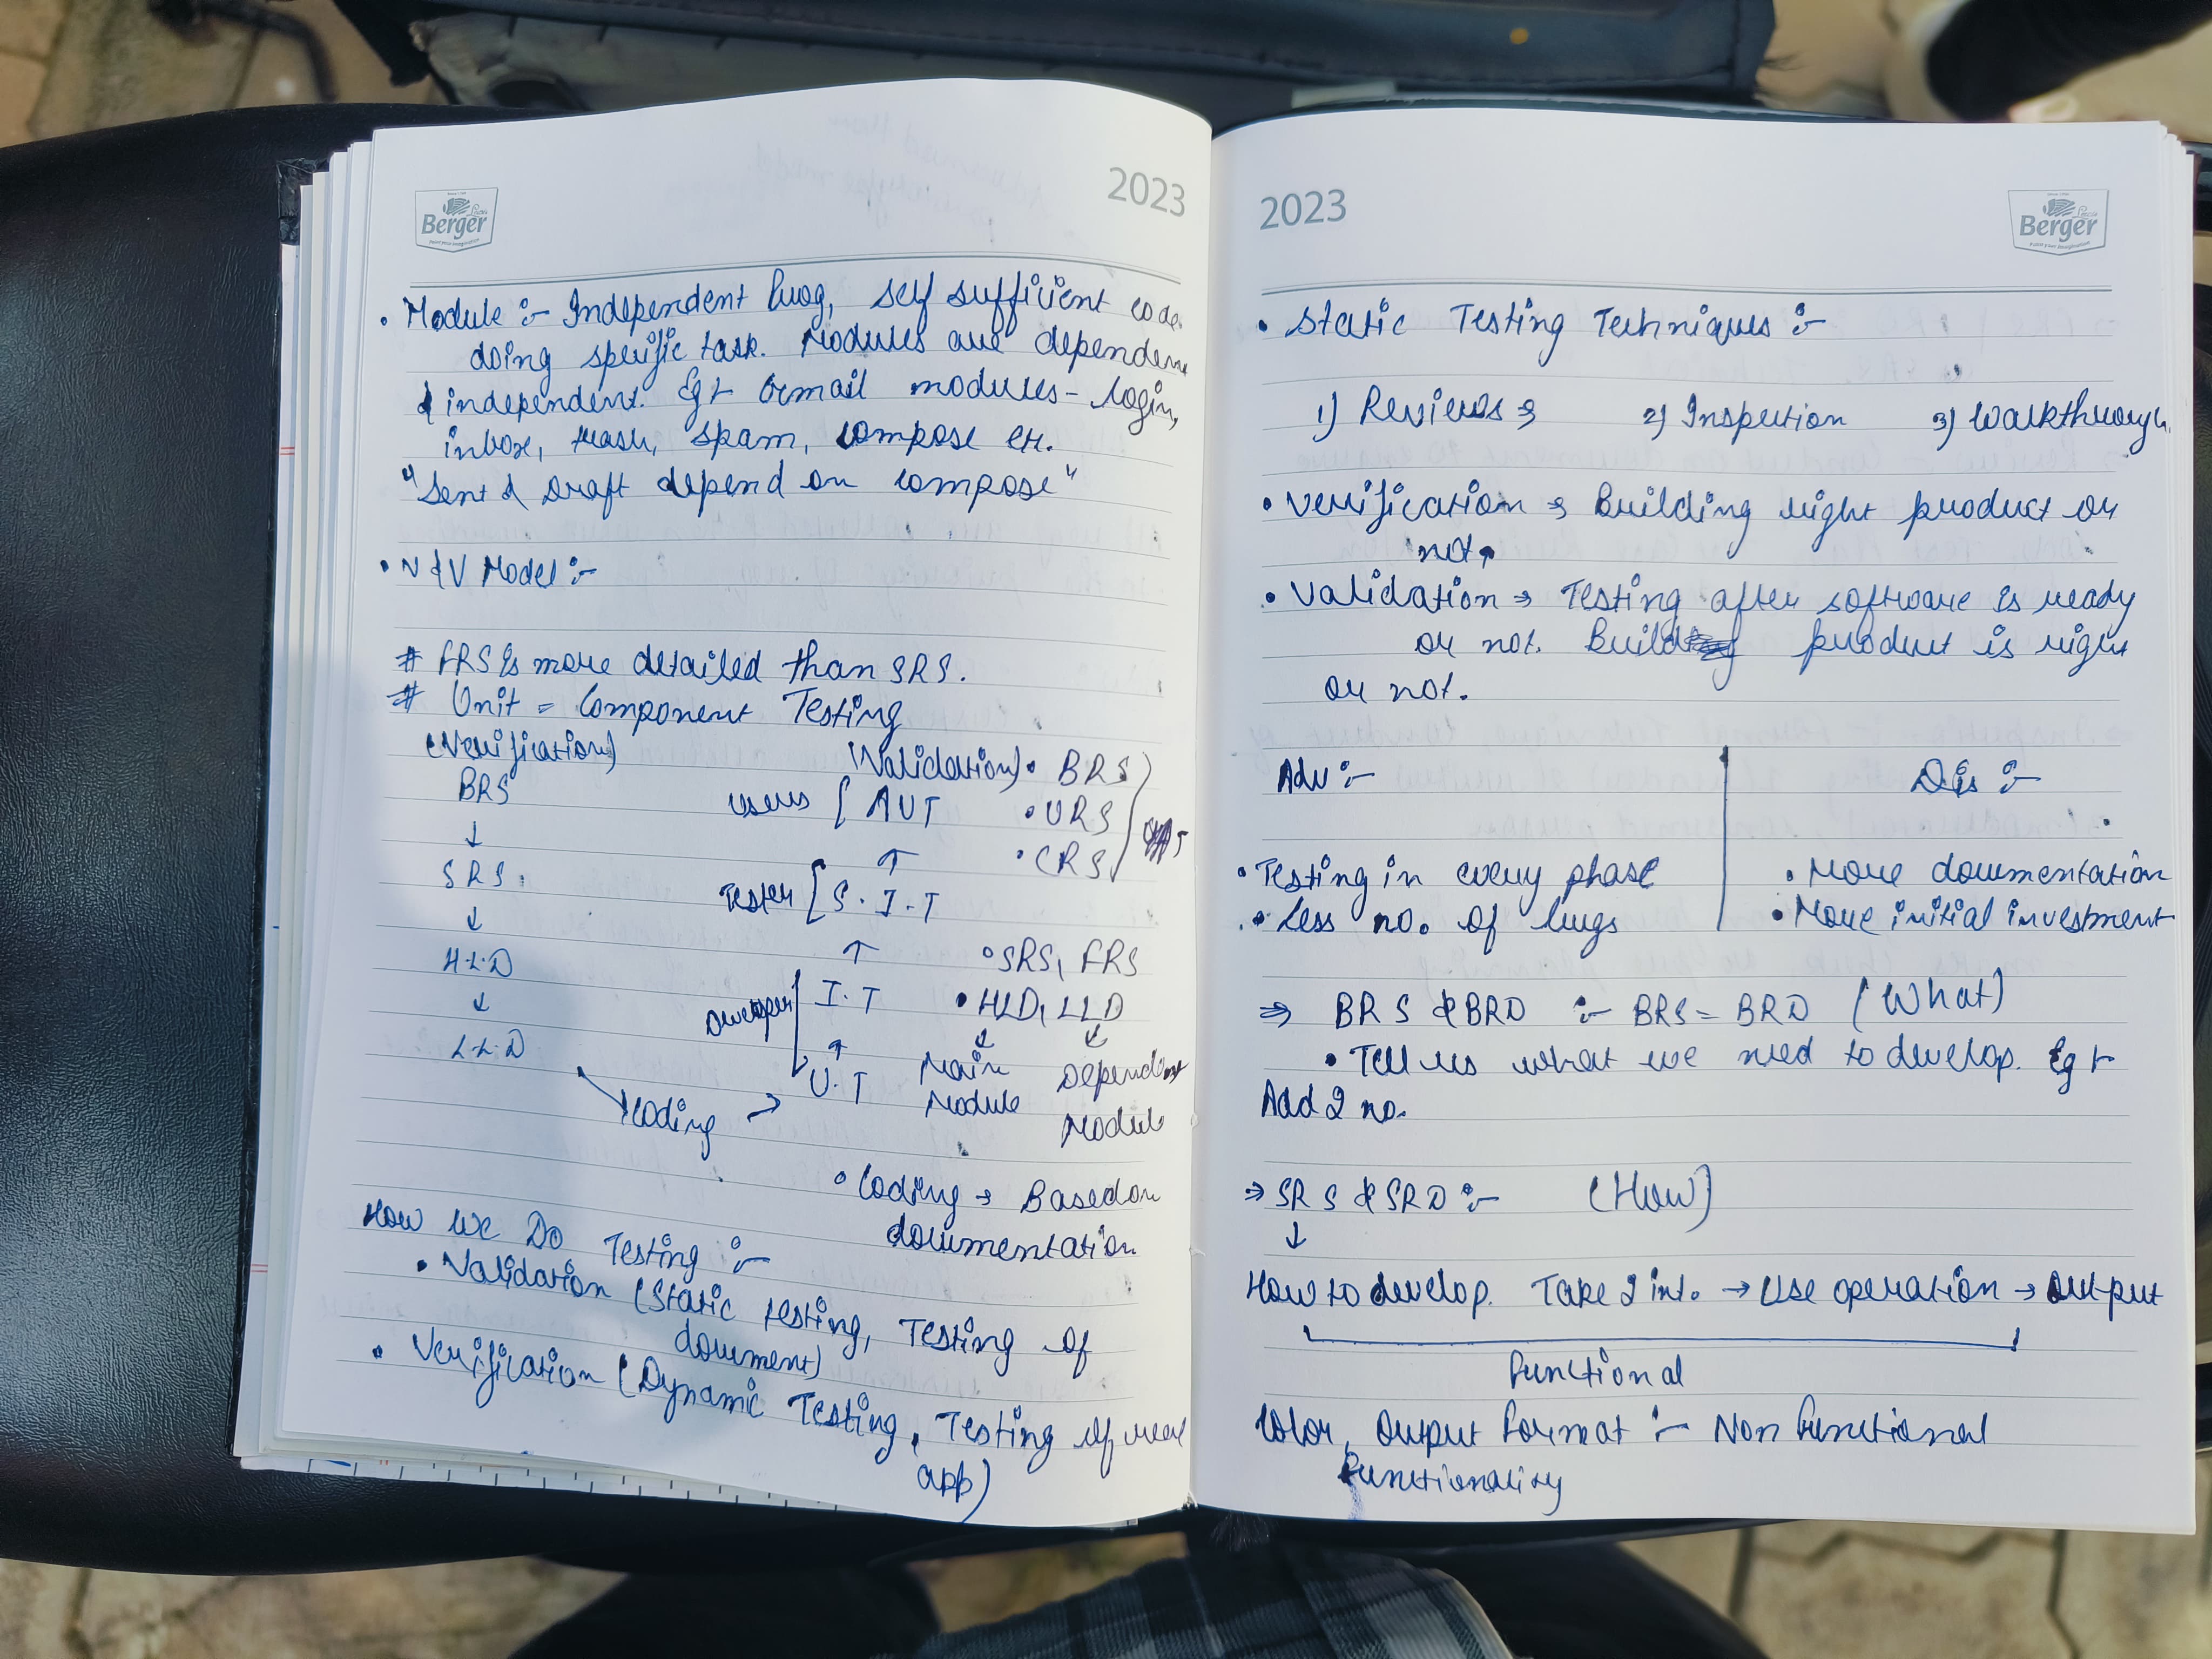 Berger
2023
• Module :- Independent Prog, self sufficient code
doing specific task. Modules are dependent
& independent. Eg :- Gmail modules - login,
inbox, trash, spam, compose etc.
"Sent & Draft depend on compose"
• V & V Model :-
# FRS is more detailed than SRS.
# Unit = Component Testing
(Verification)
(Validation)
BRS
↓
SRS
↓
H.L.D
↓
L.L.D
Coding →
Users [ AUT
↑
Tester [ S.I.T
↑
Developer [ I.T
↑
U.T
• BRS
• URS
• CRS
• SRS, FRS
• HLD, LLD
↓ ↓
Main Dependent
Module Module
• Coding → Based on
documentation
How We Do Testing :-
• Validation (Static testing, Testing of
document)
• Verification (Dynamic Testing, Testing of real
app)
2023
Berger
• Static Testing Techniques :-
1) Reviews → 2) Inspection 3) Walkthrough
• Verification → Building right product or
not.
• Validation → Testing after software is ready
or not. Build product is right
or not.
Adv :- Dis :-
• Testing in every phase • More documentation
• Less no. of bugs • More initial investment
⇒ BRS & BRD :- BRS = BRD (What)
• Tell us what we need to develop. Eg :-
Add 2 no.
⇒ SRS & SRD :- (How)
↓
How to develop. Take 2 int. → Use operation → Output
Functional
Color, Output Format :- Non Functional
Functionality